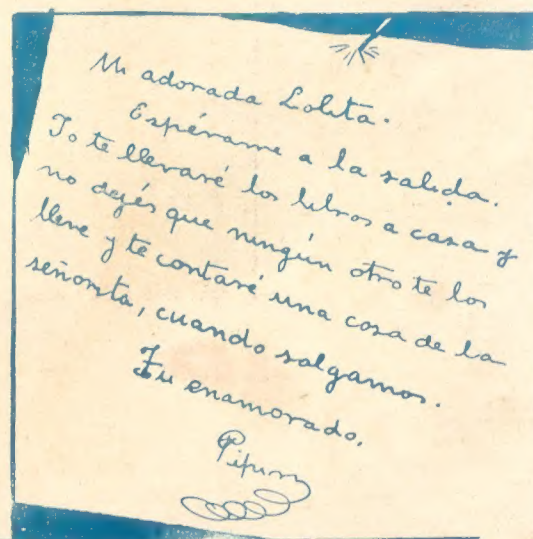 Mi adorada Lolita.
Espérame a la salida.
Yo te llevaré los libros a casa y
no dejés que ningún otro te los
lleve y te contaré una cosa de la
señorita, cuando salgamos.
Tu enamorado,